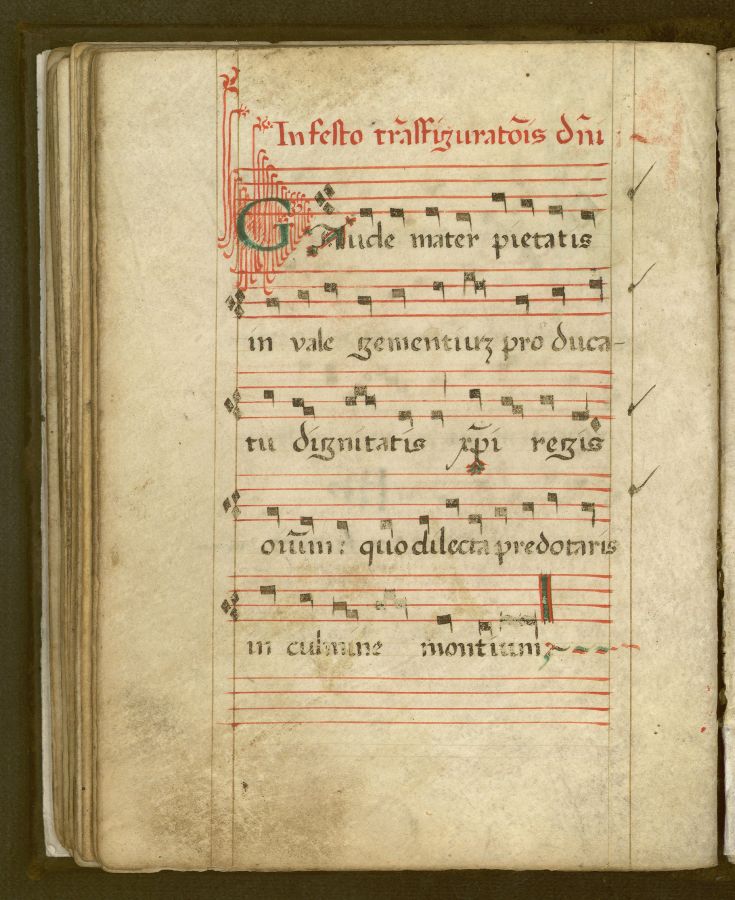 In festo trãsfiguratõis dñi
GAude mater pietatis
in vale gementiuʒ pro duca-
tu dignitatis xp̃i regis
oiũm: quo dilecta predotaris
in culmine montium